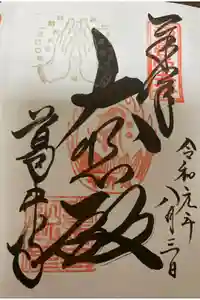 奉拝
令和元年
八月三日
大悲殿
葛井寺